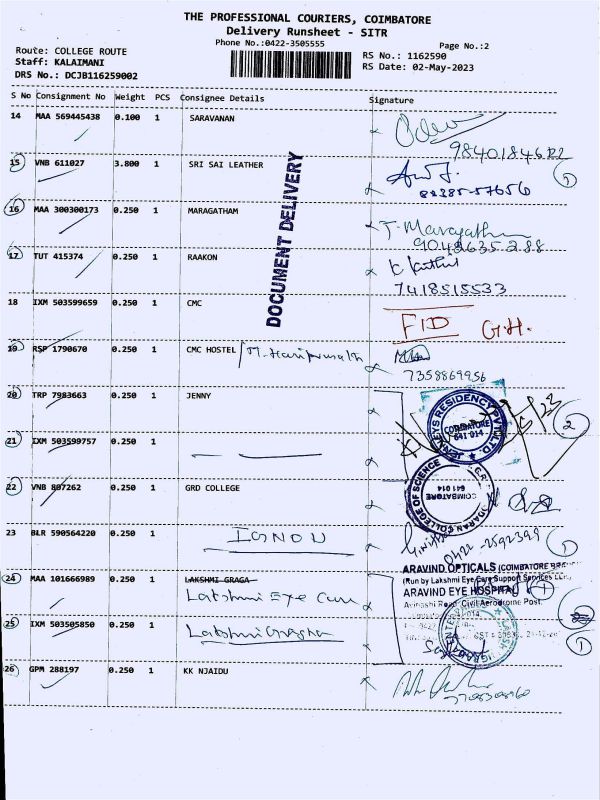 THE PROFESSIONAL COURIERS, COIMBATORE
Delivery Runsheet - SITR
Phone No.:0422-3505555
Page No.:2
Route: COLLEGE ROUTE
RS No.: 1162590
Staff: KALAIMANI
RS Date: 02-May-2023
DRS No.: DCJB116259002
S No Consignment No Weight PCS Consignee Details Signature
14 MAA 569445438 0.100 1 SARAVANAN
9840184612
15 VNB 611027 3.800 1 SRI SAI LEATHER
82385-57656
1
DOCUMENT DELIVERY
16 MAA 300300173 0.250 1 MARAGATHAM
T. Maragatham
9048635288
17 TUT 415374 0.250 1 RAAKON
7418515533
18 IXM 503599659 0.250 1 CMC
FID G.H.
19 RSP 1790670 0.250 1 CMC HOSTEL
7358869956
20 TRP 7983663 0.250 1 JENNY
JENNEYS RESIDENCY PVT LTD.
COIMBATORE
641 014
2
21 IXM 503599757 0.250 1
22 VNB 807262 0.250 1 GRD COLLEGE
COLLEGE OF SCIENCE
COIMBATORE
641 014
23 BLR 590564220 0.250 1 IGNOU
0422-2592399
1
24 MAA 101666989 0.250 1 LAKSHMI GRAGA
Lakshmi Eye Care
ARAVIND OPTICALS (COIMBATORE
(Run by Lakshmi Eye Care Support Services
ARAVIND EYE HOSPITAL
Avinashi Road, Civil Aerodrome Post,
25 IXM 503505850 0.250 1 Lakshmi Gragha
1
26 GPM 288197 0.250 1 KK NJAIDU